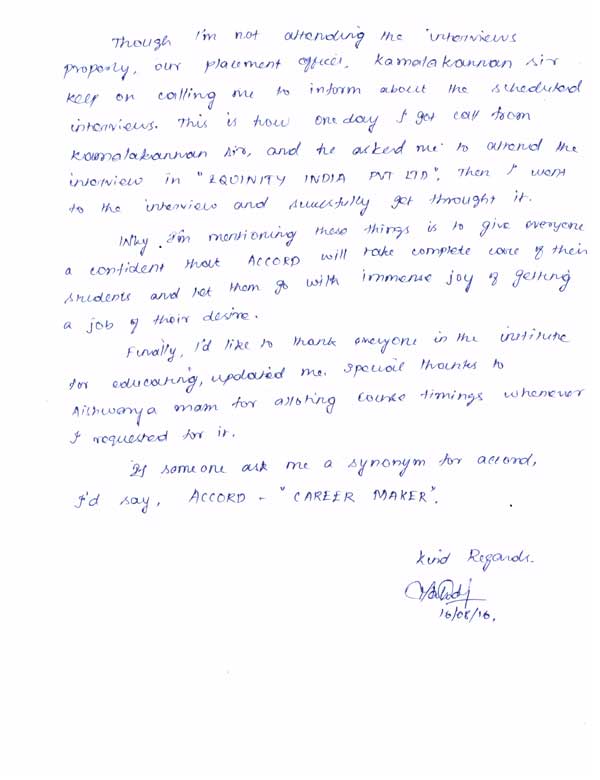 Though I'm not attending the interviews
properly, our placement officer, Kamalakannan sir
keep on calling me to inform about the scheduled
interviews. This is how one day I got call from
Kamalakannan sir, and he asked me to attend the
interview in "EQUINITY INDIA PVT LTD". Then I went
to the interview and sucessfully get throught it.
Why I'm mentioning these things is to give everyone
a confident that ACCORD will take complete care of their
students and let them go with immense joy of getting
a job of their desire.
Finally, I'd like to thank everyone in the institute
for educating, updated me. Special thanks to
Aishwarya mam for alloting course timings whenever
I requested for it.
If someone ask me a synonym for accord,
I'd say, ACCORD - "CAREER MAKER".
Kind Regards.
16/08/16.